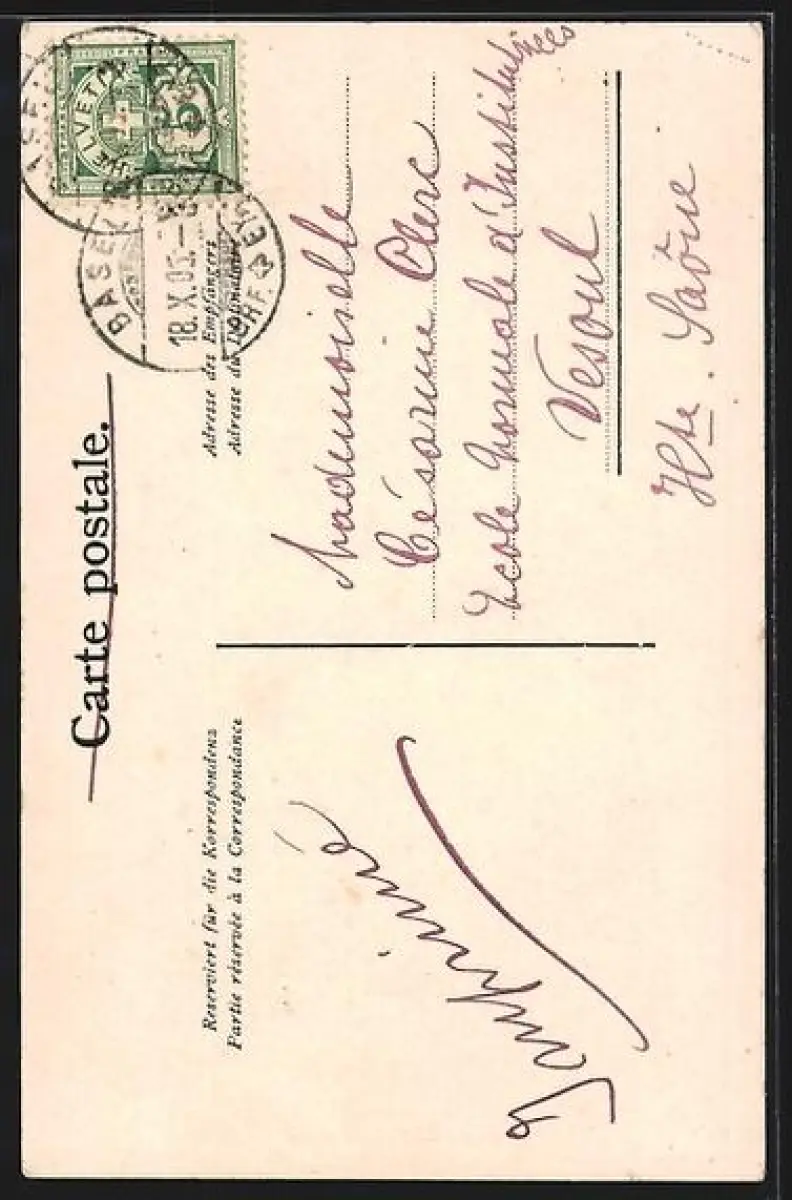 Carte postale.
Reserviert für die Korrespondenz
Partie réservée à la Correspondance
Imprimé
HELVETIA
5
BASEL
18.X.05.
Adresse des Empfängers
Adresse du Destinataire
Mademoiselle
Césarine Clerc
Ecole Normale d'Institutrices
Vesoul
Hte. Saône